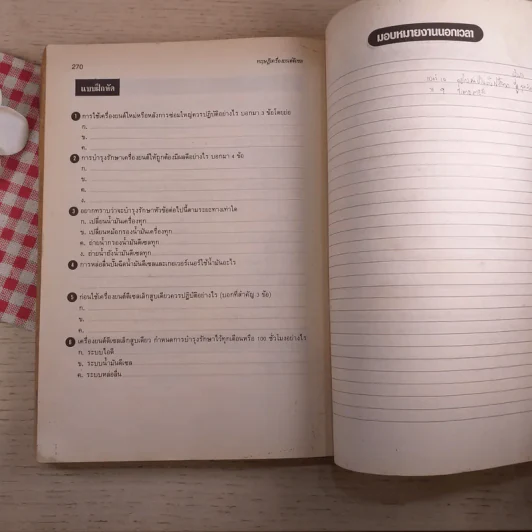 270
ทฤษฎีเครื่องยนต์ดีเซล
แบบฝึกหัด
1 การใช้เครื่องยนต์ใหม่หรือหลังการซ่อมใหญ่ควรปฏิบัติอย่างไร บอกมา 3 ข้อโดยย่อ
ก.
ข.
ค.
2 การบำรุงรักษาเครื่องยนต์ให้ถูกต้องมีผลดีอย่างไร บอกมา 4 ข้อ
ก.
ข.
ค.
ง.
3 อยากทราบว่าจะบำรุงรักษาหัวข้อต่อไปนี้ตามระยะทางเท่าใด
ก. เปลี่ยนน้ำมันเครื่องทุก
ข. เปลี่ยนหม้อกรองน้ำมันเครื่องทุก
ค. ถ่ายน้ำกรองน้ำมันดีเซลทุก
ง. ถ่ายน้ำถังน้ำมันดีเซลทุก
4 การหล่อลื่นปั๊มฉีดน้ำมันดีเซลและกัฟเวอร์เนอร์ใช้น้ำมันอะไร
5 ก่อนใช้เครื่องยนต์ดีเซลเล็กสูบเดียวควรปฏิบัติอย่างไร (บอกที่สำคัญ 3 ข้อ)
ก.
ข.
ค.
6 เครื่องยนต์ดีเซลเล็กสูบเดียว กำหนดการบำรุงรักษาไว้ทุกเดือนหรือ 100 ชั่วโมงอย่างไร
ก. ระบบไอดี
ข. ระบบน้ำมันดีเซล
ค. ระบบหล่อลื่น
มอบหมายงานนอกเวลา